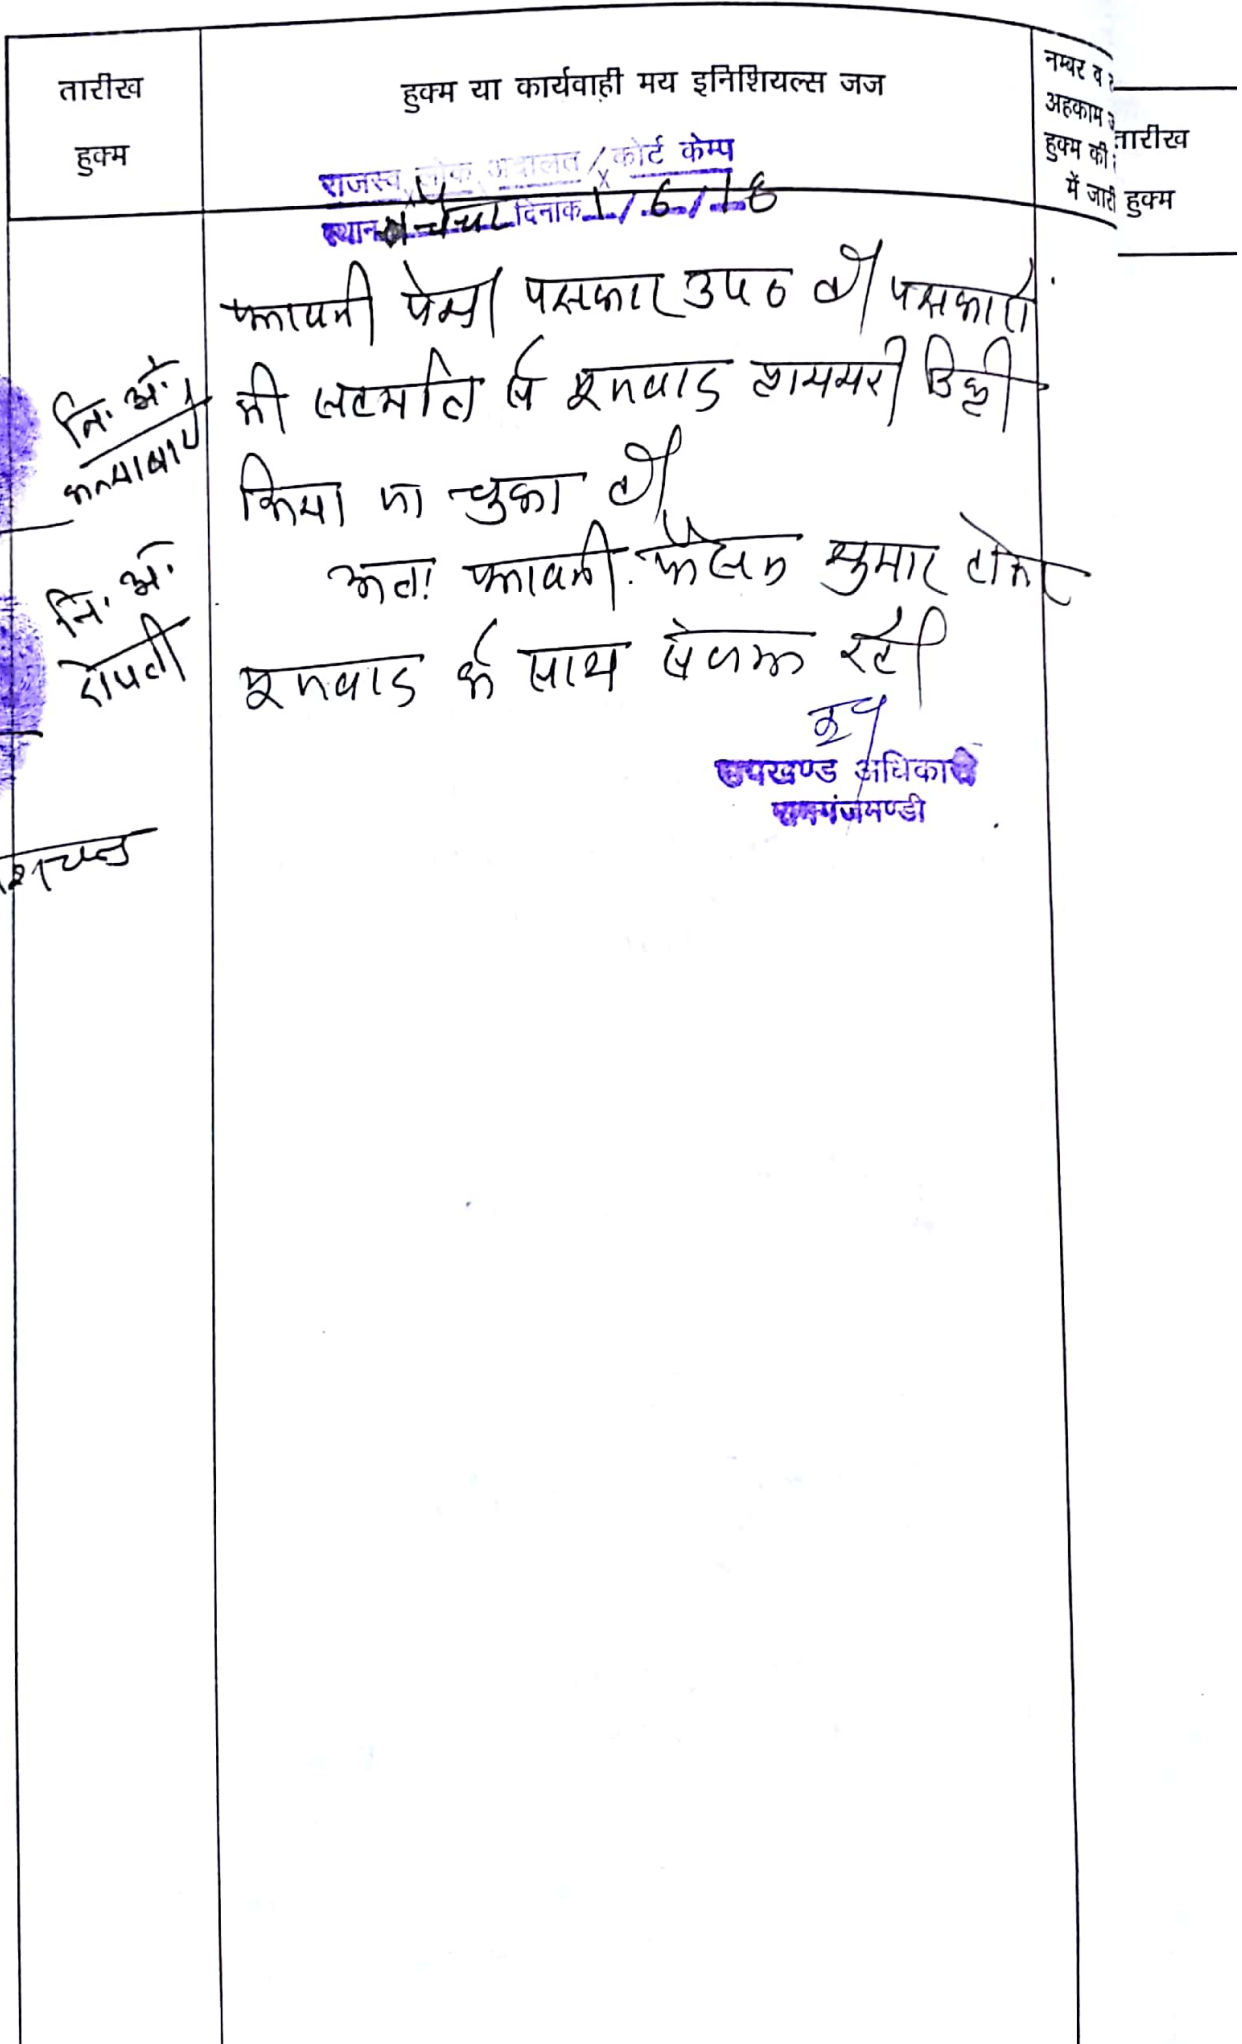 तारीख
हुक्म
हुक्म या कार्यवाही मय इनिशियल्स जज
नम्बर व
अहकाम
हुक्म की
में जारी
तारीख
हुक्म
राजस्व लोक अदालत / कोर्ट केम्प
स्थान दिनाक 1/6/18
पत्रावली पेश। पक्षकार उप० है। पक्षकारों
की सहमति से मूलवाद प्रायमरी डिक्री
किया जा चुका है।
अतः पत्रावली फैसल शुमार होकर
मूलवाद के साथ संलग्न रहे।
उपखण्ड अधिकारी
रामगंजमण्डी
नि. अं.
कन्याबाई
नि. अं.